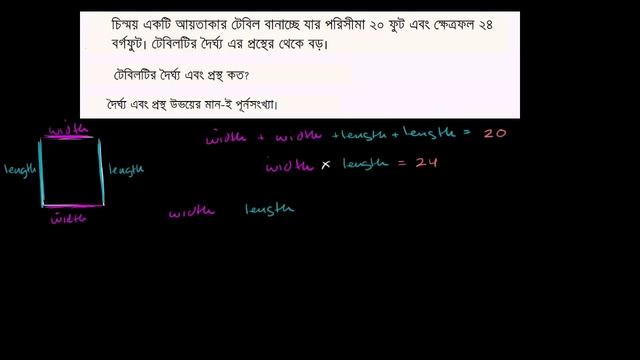 চিন্ময় একটি আয়তাকার টেবিল বানাচ্ছে যার পরিসীমা ২০ ফুট এবং ক্ষেত্রফল ২৪
বর্গফুট। টেবিলটির দৈর্ঘ্য এর প্রস্থের থেকে বড়।
টেবিলটির দৈর্ঘ্য এবং প্রস্থ কত?
দৈর্ঘ্য এবং প্রস্থ উভয়ের মান-ই পূর্নসংখ্যা।
width
width + width + length + length = 20
length length
width × length = 24
width
width length